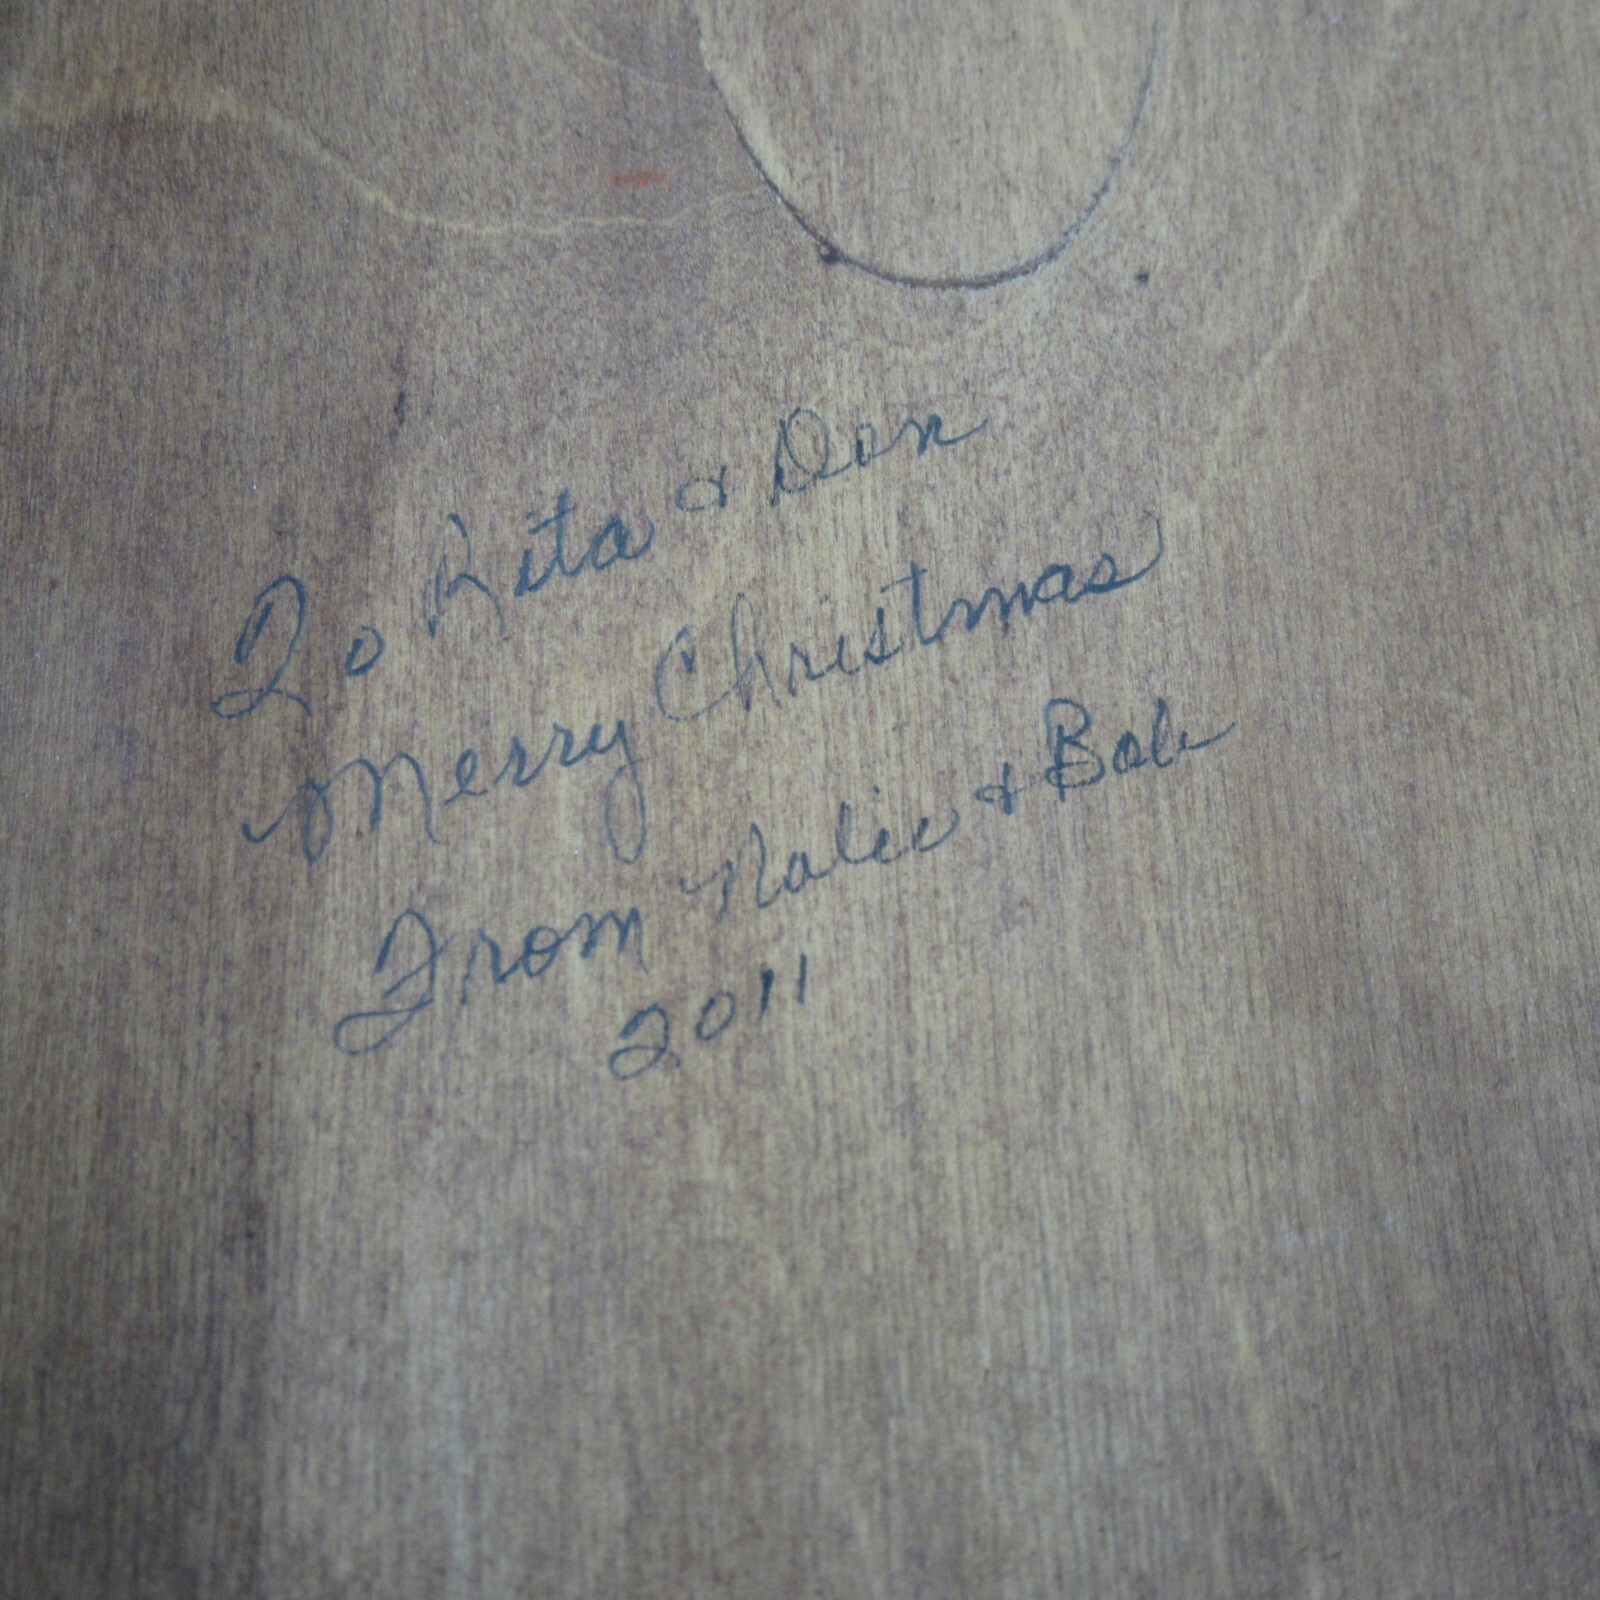 To Rita & Don
Merry Christmas
From Nalie & Bob
2011